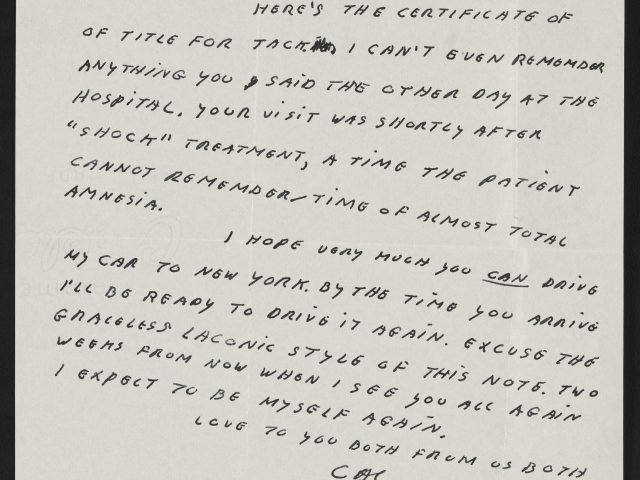 HERE'S THE CERTIFICATE OF
OF TITLE FOR TACK. I CAN'T EVEN REMEMBER
ANYTHING YOU SAID THE OTHER DAY AT THE
HOSPITAL. YOUR VISIT WAS SHORTLY AFTER
"SHOCK" TREATMENT, A TIME THE PATIENT
CANNOT REMEMBER, TIME OF ALMOST TOTAL
AMNESIA.
I HOPE VERY MUCH YOU CAN DRIVE
MY CAR TO NEW YORK. BY THE TIME YOU ARRIVE
I'LL BE READY TO DRIVE IT AGAIN. EXCUSE THE
GRACELESS LACONIC STYLE OF THIS NOTE. TWO
WEEKS FROM NOW WHEN I SEE YOU ALL AGAIN
I EXPECT TO BE MYSELF AGAIN.
LOVE TO YOU BOTH FROM US BOTH
CAL